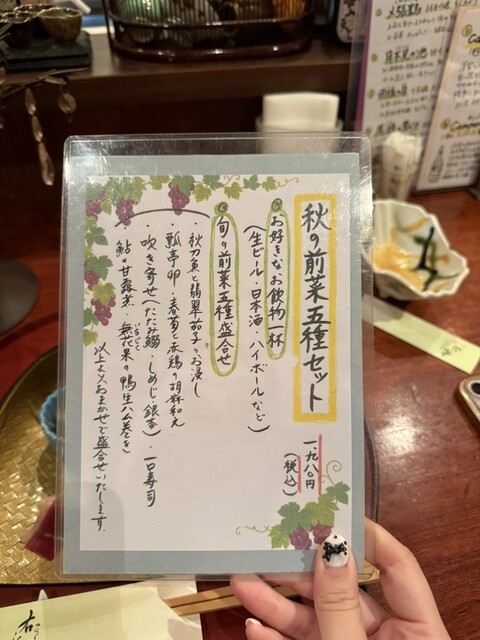 秋の前菜五種セット
一、九八〇円
(税込)
お好きなお飲物一杯
(生ビール・日本酒・ハイボールなど)
旬の前菜五種盛合せ
秋刀魚と翡翠茄子のお浸し
瓢亭卵・春菊と赤鶏の胡麻和え
・吹き寄せ(たたみ鰯・しめじ・銀杏)・一口寿司
・鮎の甘露煮・無花果の鴨生ハム巻き
いちじく
以上よりおまかせで盛合せいたします。